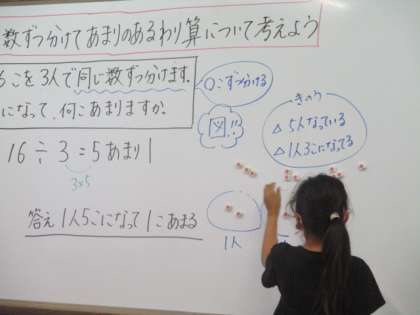 数ずつ分けてあまりのあるわり算について考えよう
こを3人で同じ数ずつ分けます。
になって、何こあまりますか。
○こずつ分ける
図!!
きのう
△ 5人なっている
△ 1人3こになってる
16÷3=5あまり1
3×5
答え 1人5こになって1こあまる
1人